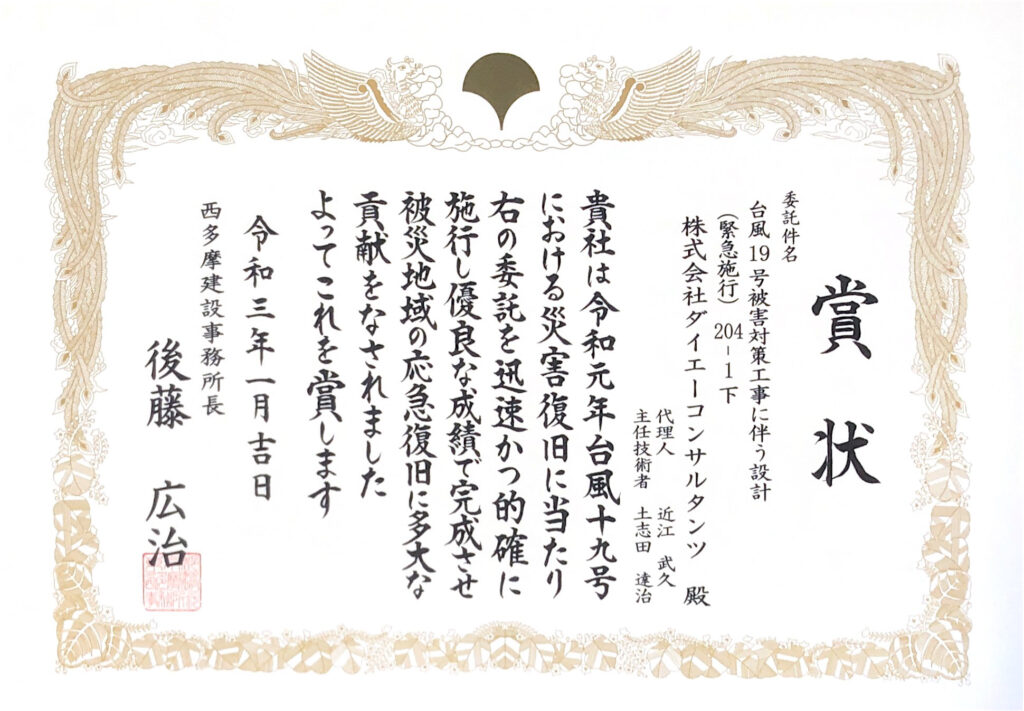 賞状
委託件名
台風19号被害対策工事に伴う設計
(緊急施行) 204-1下
株式会社ダイエーコンサルタンツ 殿
代理人 近江 武久
主任技術者 土志田 達治
貴社は令和元年台風十九号
における災害復旧に当たり
右の委託を迅速かつ的確に
施行し優良な成績で完成させ
被災地域の応急復旧に多大な
貢献をなされました
よってこれを賞します
令和三年一月吉日
西多摩建設事務所長
後藤 広治